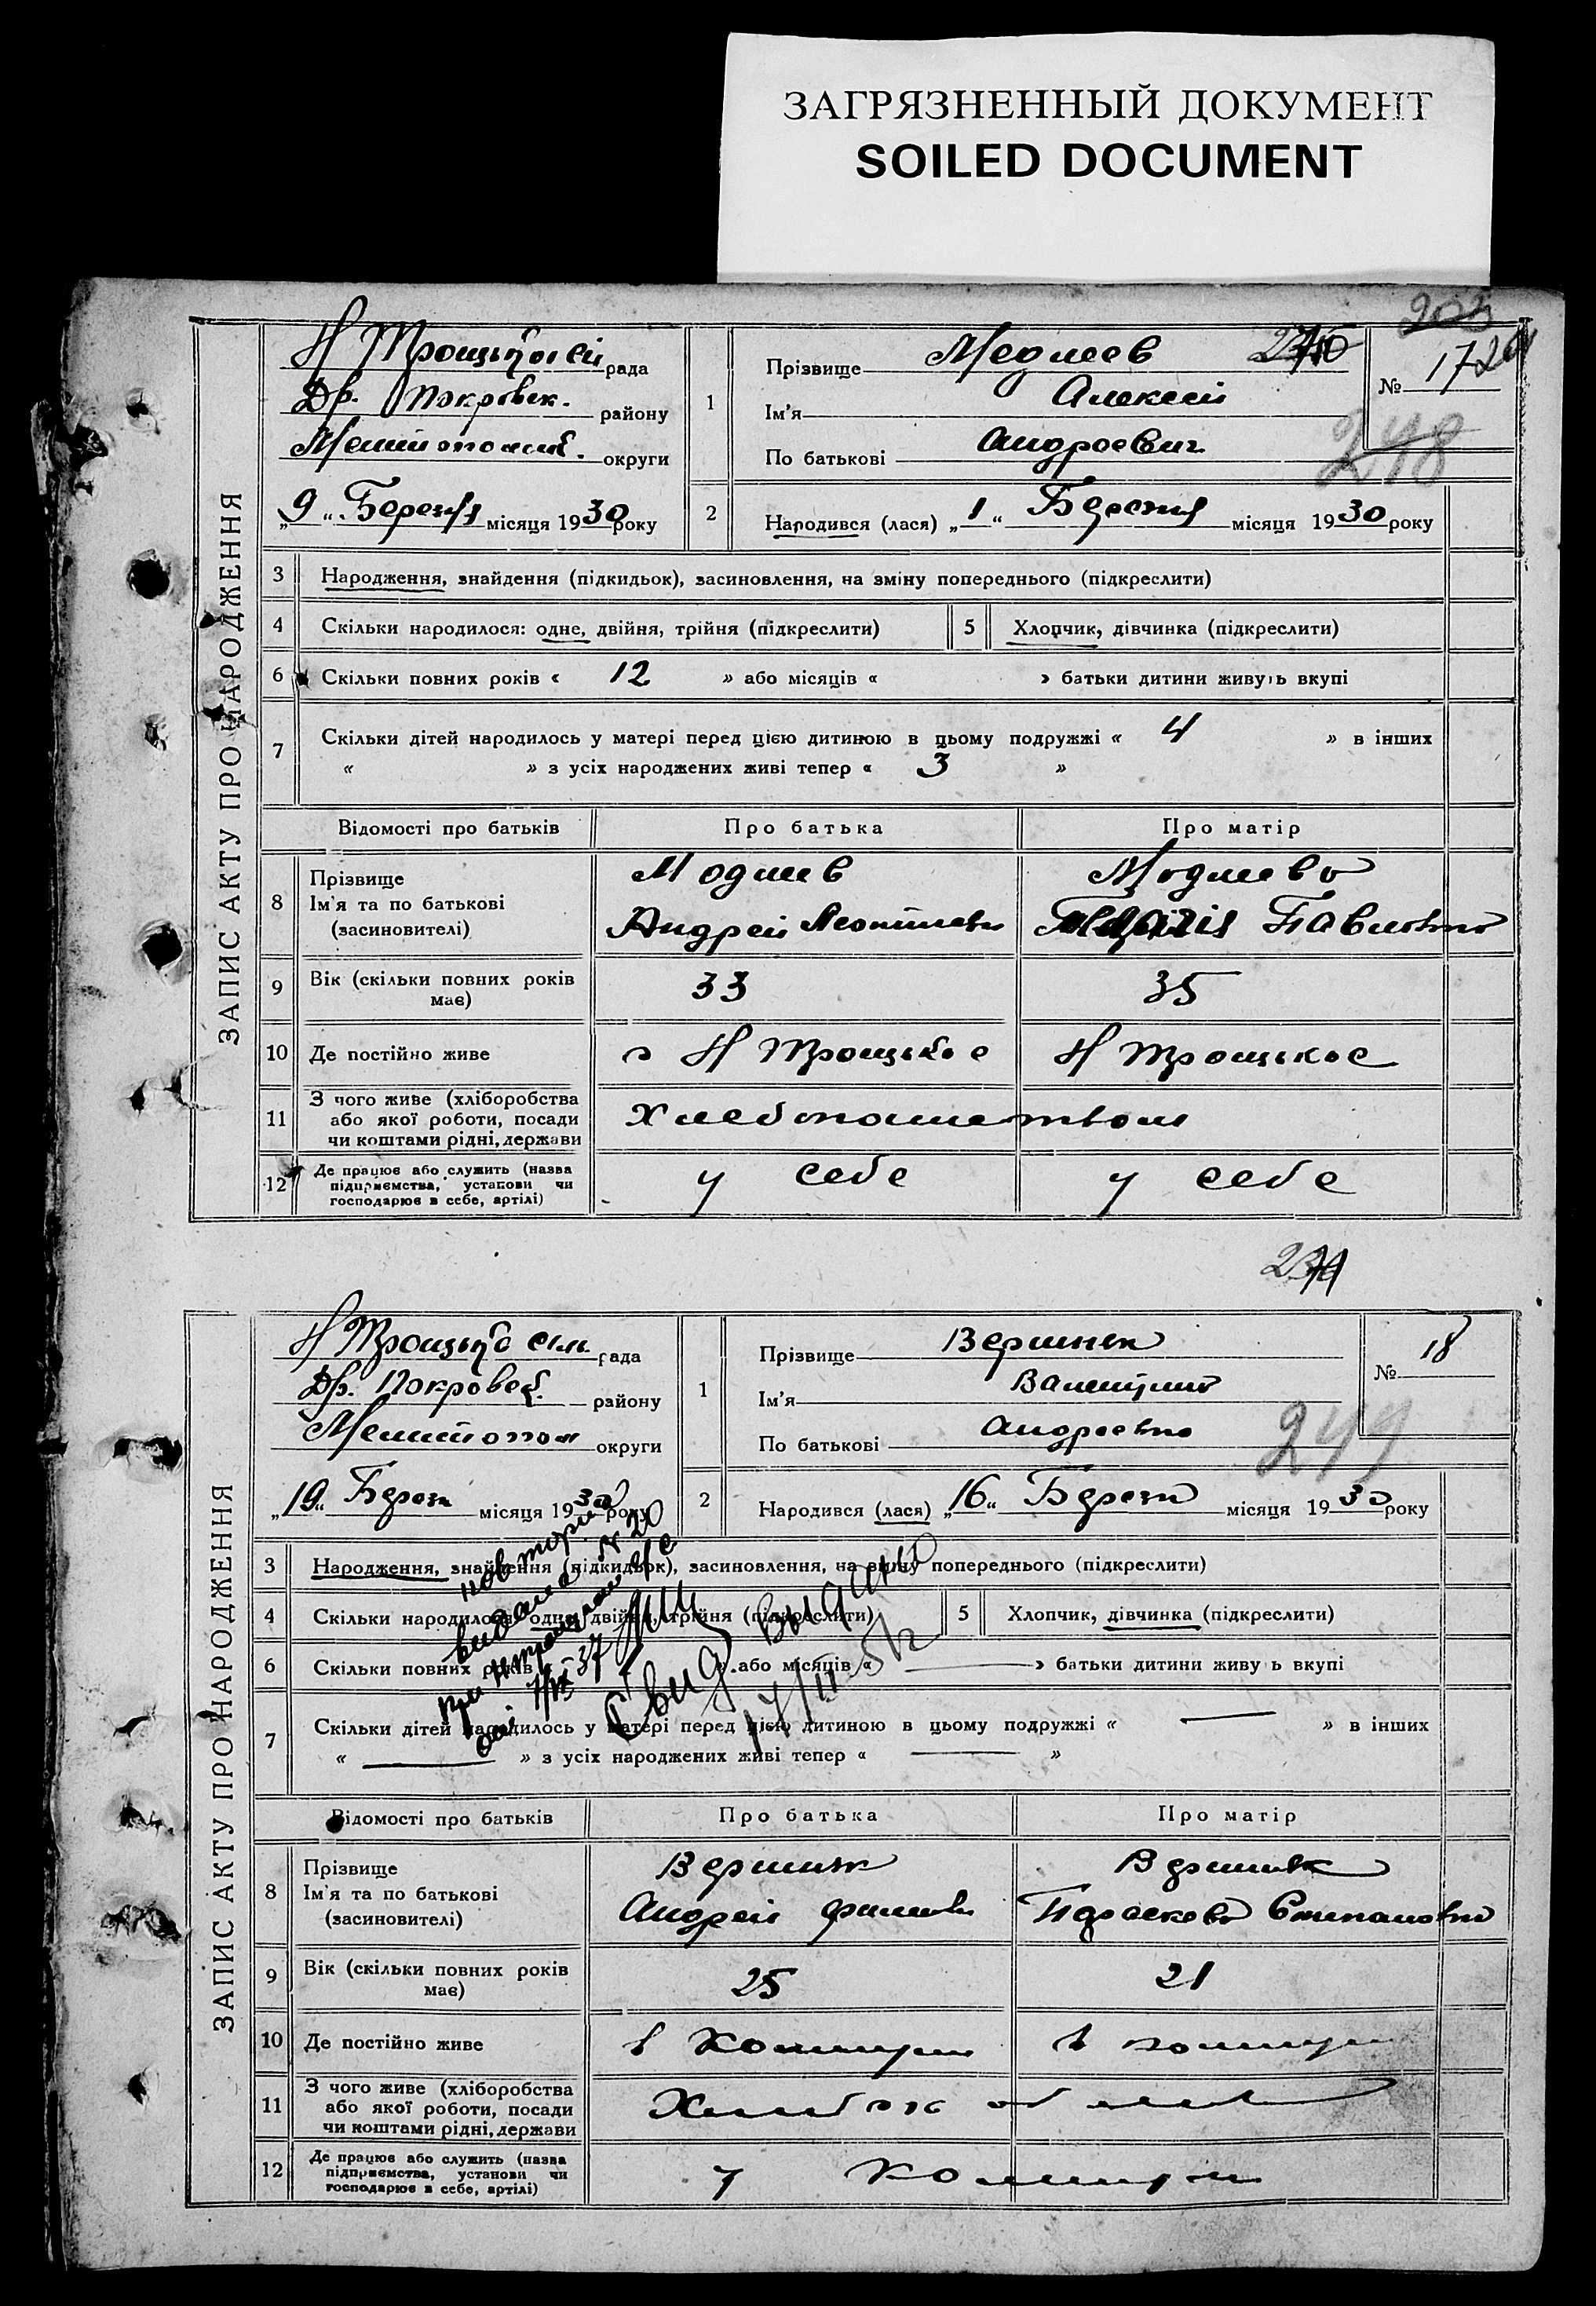 ЗАГРЯЗНЕННЫЙ ДОКУМЕНТ
SOILED DOCUMENT
203
ЗАПИС АКТУ ПРО НАРОДЖЕННЯ
Н Троцьк рада
Др. Покровск. району
Мелитопольск. округи
„9“ Березня місяця 1930 року
1
Прізвище Модлеев
Ім'я Алексей
По батькові Андреевич
№ 17
248
2
Народився (лася) „1“ Березня місяця 1930 року
3 Народження, знайдення (підкидьок), засиновлення, на зміну попереднього (підкреслити)
4 Скільки народилося: одне, двійня, трійня (підкреслити) 5 Хлопчик, дівчинка (підкреслити)
6 Скільки повних років « 12 » або місяців « » батьки дитини живуть вкупі
7 Скільки дітей народилось у матері перед цією дитиною в цьому подружжі « 4 » в інших
« » з усіх народжених живі тепер « 3 »
Відомості про батьків Про батька Про матір
8 Прізвище
Ім'я та по батькові
(засновителі)
Андрей
Павловна
9 Вік (скільки повних років має) 33 35
10 Де постійно живе с Н Троцькое Н Троцькое
11 З чого живе (хліборобства або якої роботи, посади чи коштами рідні, держави Хлебопашеством
12 Де працює або служить (назва підприємства, установи чи господарює в себе, артілі) у себе у себе
ЗАПИС АКТУ ПРО НАРОДЖЕННЯ
Н Троцьк сіль рада
Др. Покровск. району
Мелитопол округи
„19“ Березн місяця 1930 року
1
Прізвище Вершняк
Ім'я Валентина
По батькові Андреевна
№ 18
249
2
Народився (лася) „16“ Березн місяця 1930 року
3 Народження, знайдення (підкидьок), засиновлення, на зміну попереднього (підкреслити)
4 Скільки народилося: одне, двійня, трійня (підкреслити) 5 Хлопчик, дівчинка (підкреслити)
6 Скільки повних років « » або місяців « — » батьки дитини живу ь вкупі
7 Скільки дітей народилось у матері перед цією дитиною в цьому подружжі « — » в інших
« — » з усіх народжених живі тепер « — »
повторно
видано № 20
Свид выдано
Відомості про батьків Про батька Про матір
8 Прізвище
Ім'я та по батькові
(засиновителі)
Вершняк Вершняк
Андрей Парасковья Степановна
9 Вік (скільки повних років має) 25 21
10 Де постійно живе в Коммуне в коммуне
11 З чого живе (хліборобства або якої роботи, посади чи коштами рідні, держави
12 Де працює або служить (назва підприємства, установи чи господарює в себе, артілі) у коммуне